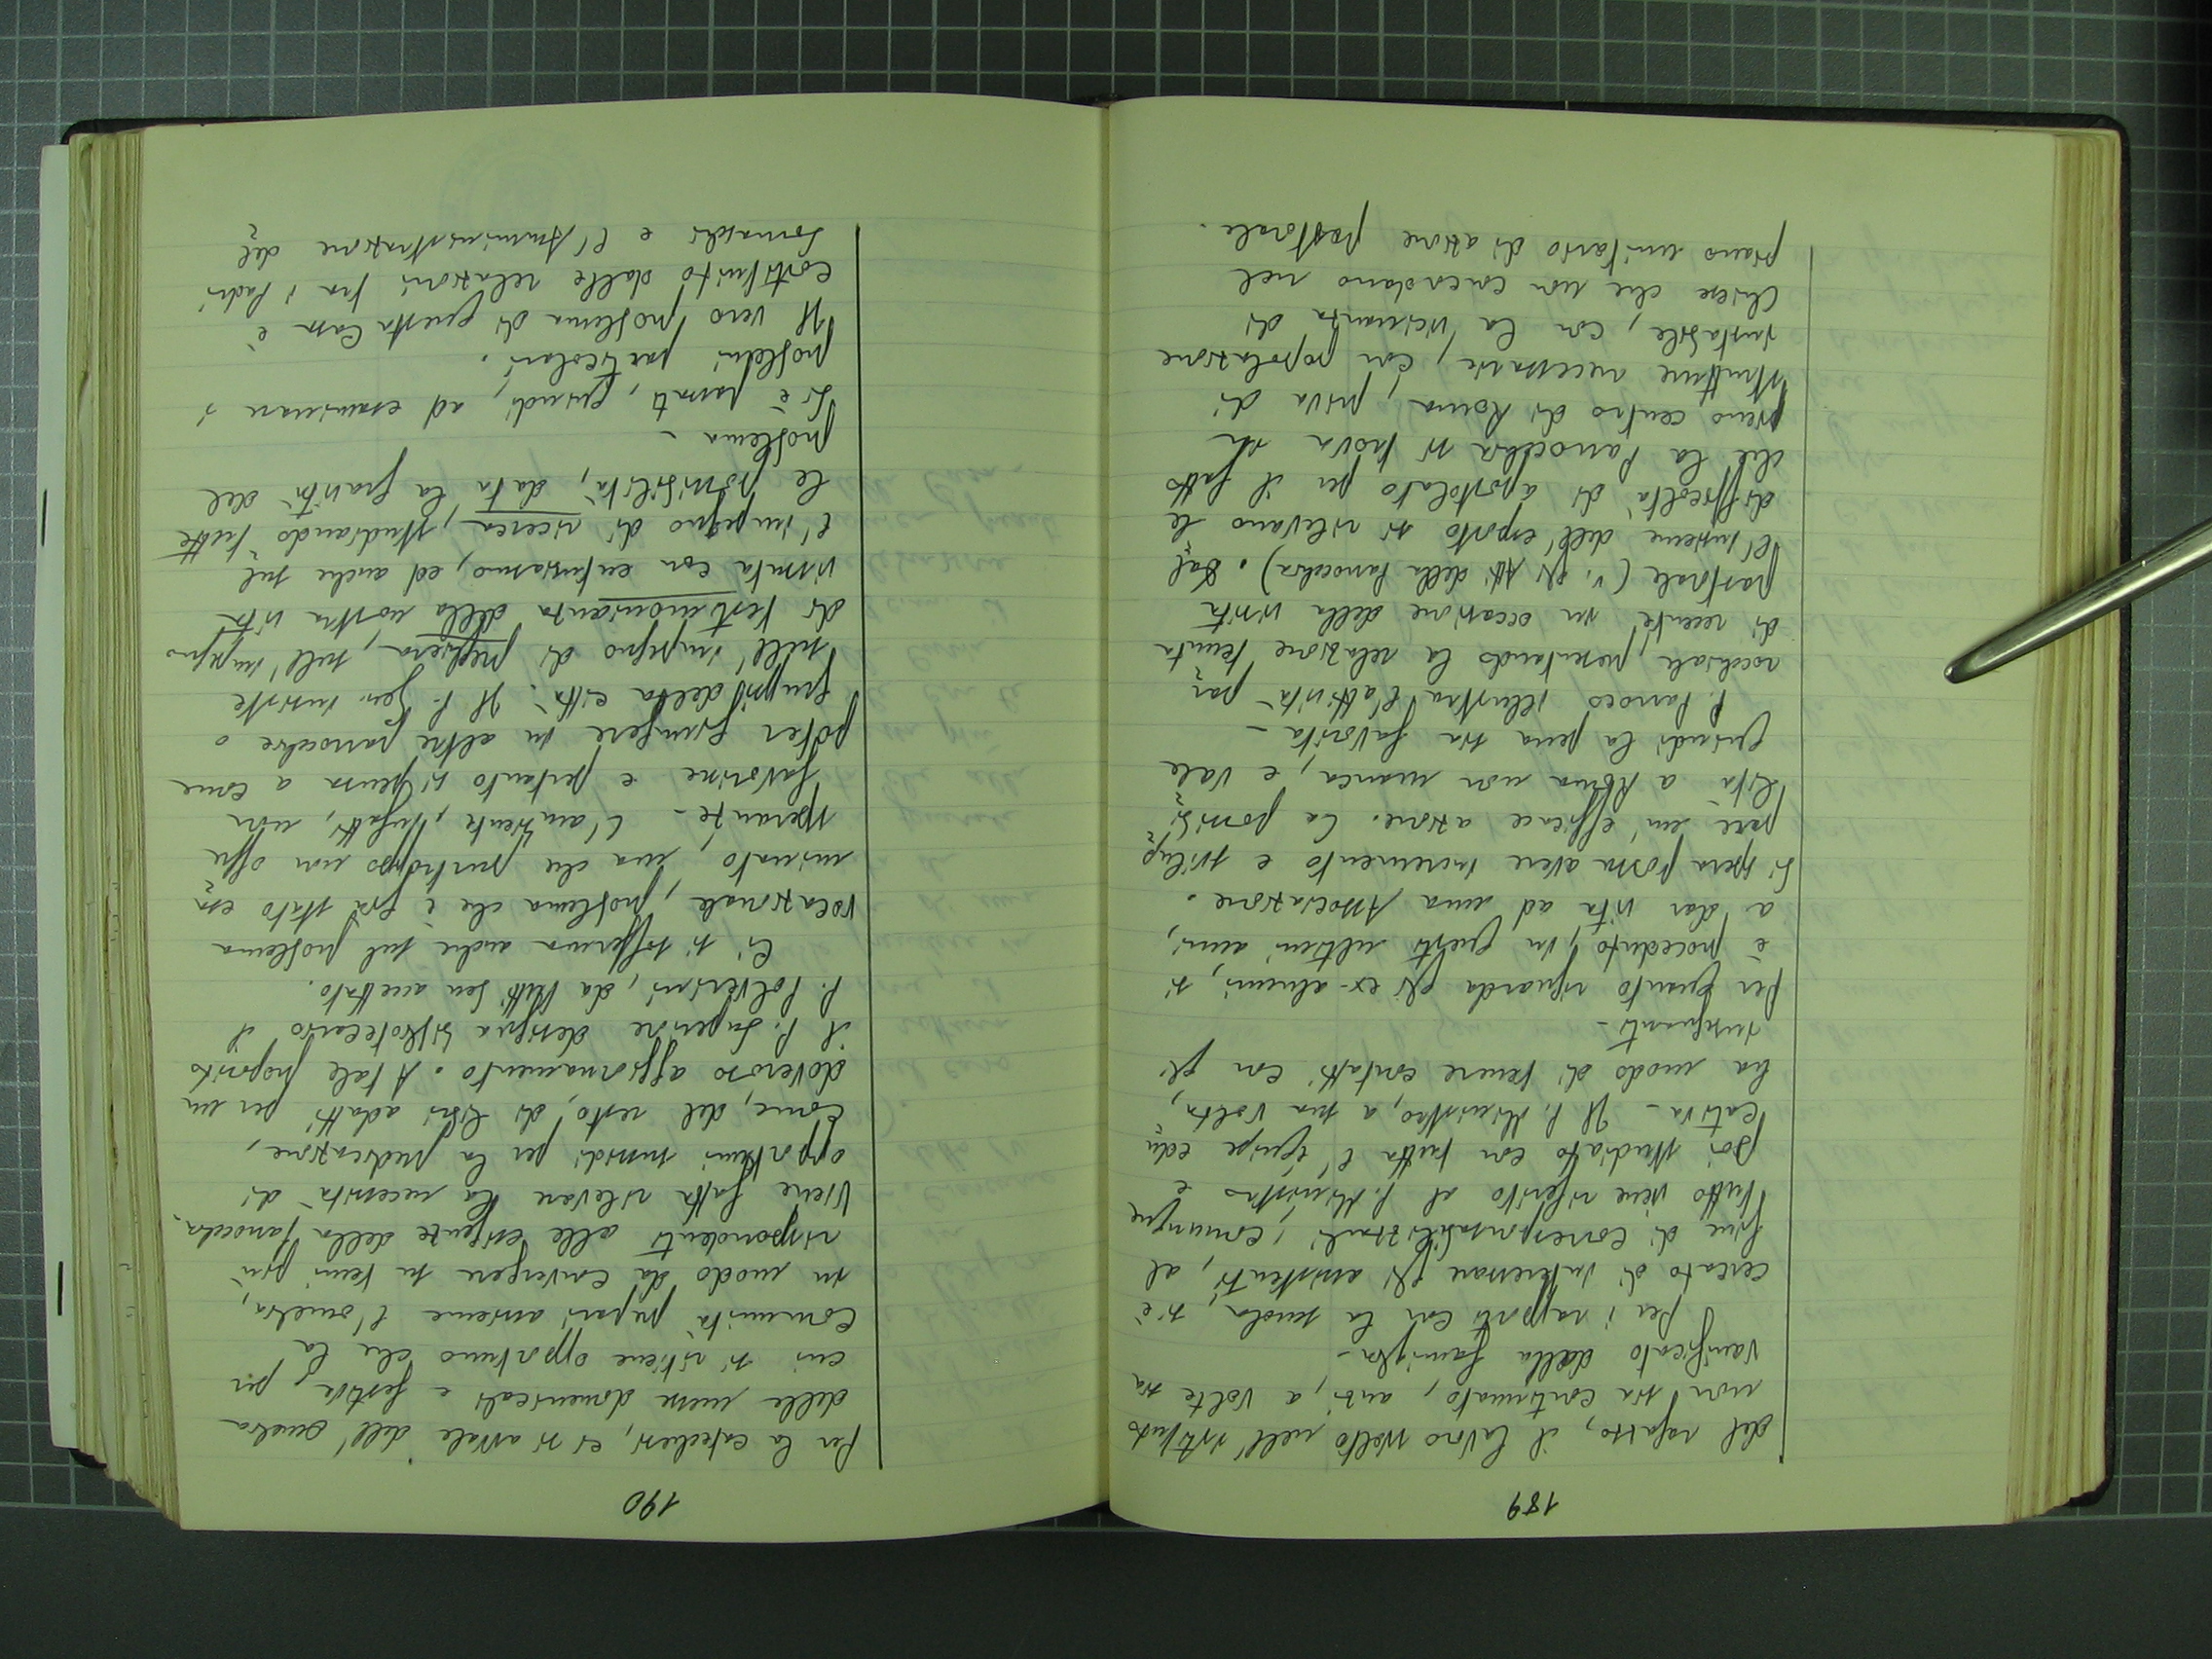 189
del ragazzo, il lavoro svolto nell'istituto
non sia continuato, anzi, a volte sia
vanificato dalla famiglia -
Per i rapporti con la scuola, si è
cercato di interessare gli assistenti, al
fine di corresponsabilizzarli; comunque
tutto viene riferito al P. Ministro e
poi studiato con tutta l'équipe edu
cativa - Il P. Ministro, a sua volta,
ha modo di tenere contatti con gli
insegnanti -
Per quanto riguarda gli ex-alunni, si
è proceduto, in questi ultimi anni,
a dar vita ad una Associazione.
Si spera possa avere incremento e svilup
pare un'efficace azione. La possibi
lità a Roma non manca, e vale
quindi la pena sia favorita -
P. Parroco illustra l'attività par
rocchiale, presentando la relazione tenuta
di recente in occasione della visita
pastorale (v. gli Atti della Parrocchia). Dal
l'insieme dell'esposto si rilevano le
difficoltà di apostolato per il fatto
che la Parrocchia si trova in
pieno centro di Roma, priva di
strutture necessarie, con popolazione
instabile, con la vicinanza di
Chiese che non concordano nel
piano unitario di azione pastorale.
190
Per la catechesi, ci si avvale dell'omelia
delle messe domenicali e festive, per
cui si ritiene opportuno che la
Comunità prepari assieme l'omelia,
in modo da convergere su temi più
rispondenti alle esigenze della parrocchia.
Viene fatta rilevare la necessità di
opportuni sussidi per la predicazione,
come, del resto, di libri adatti per un
doveroso aggiornamento. A tale proposito
il P. Superiore designa bibliotecario il
P. Polverini, da tutti ben accettato.
Ci si sofferma anche sul problema
vocazionale, problema che è già stato esa
minato, ma che purtroppo non offre
speranze - L'ambiente, infatti, non
favorisce e pertanto si pensa a come
poter giungere in altre parrocchie o
gruppi della città. Il P. Gen. insiste
sull'impegno di preghiera, sull'impegno
di testimonianza della nostra vita
vissuta con entusiasmo, ed anche sul
l'impegno di ricerca, studiando tutte
le possibilità, data la gravità del
problema -
Si è passati, quindi, ad esaminare i
problemi particolari.
Il vero problema di questa Casa è
costituito dalle relazioni fra i Padri
Somaschi e l'Amministrazione del